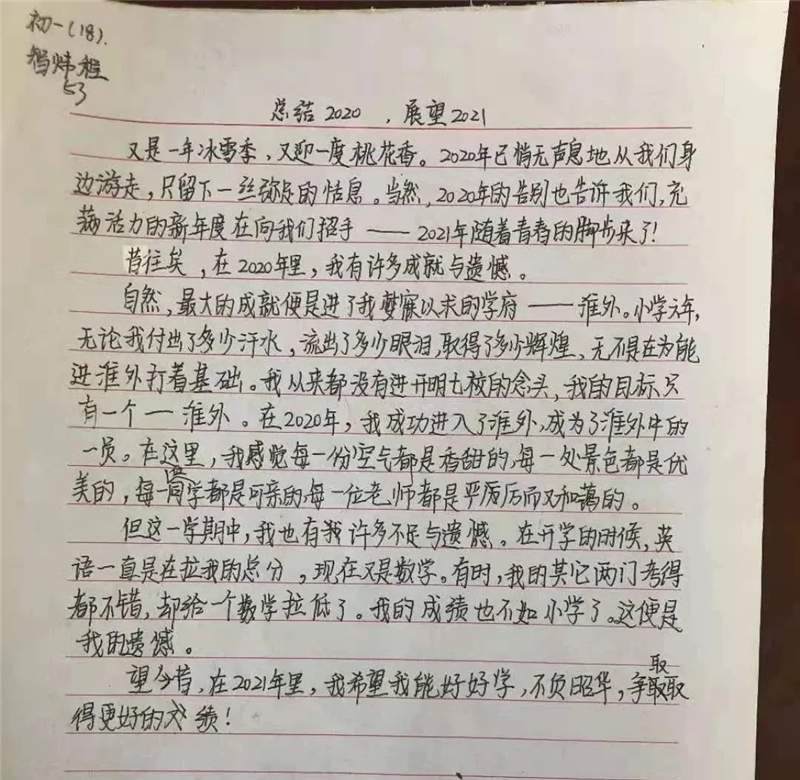 初一(18).
炜程
53
总结2020,展望2021
又是一年冰雪季,又迎一度桃花香。2020年已悄无声息地从我们身
边游走,只留下一丝弥足的惜息。当然,2020年的告别也告诉我们,充
满活力的新年度在向我们招手——2021年随着青春的脚步来了!
昔往矣,在2020年里,我有许多成就与遗憾。
自然,最大的成就便是进了我梦寐以求的学府——淮外。小学六年,
无论我付出了多少汗水,流出了多少眼泪,取得了多少辉煌,无不是在为能
进淮外打着基础。我从来都没有进开明七校的念头,我的目标只
有一个—淮外。在2020年,我成功进入了淮外,成为了淮外中的
一员。在这里,我感觉每一份空气都是香甜的,每一处景色都是优
美的,每一同学都是可亲的,每一位老师都是严厉后而又和蔼的。
但这一学期中,我也有我许多不足与遗憾。在开学的时候,英
语一直是在拉我的总分,现在又是数学。有时,我的其它两门考得
都不错,却给一个数学拉低了。我的成绩也不如小学了。这便是
我的遗憾。
望今昔,在2021年里,我希望我能好好学,不负昭华,争取取
得更好的成绩!